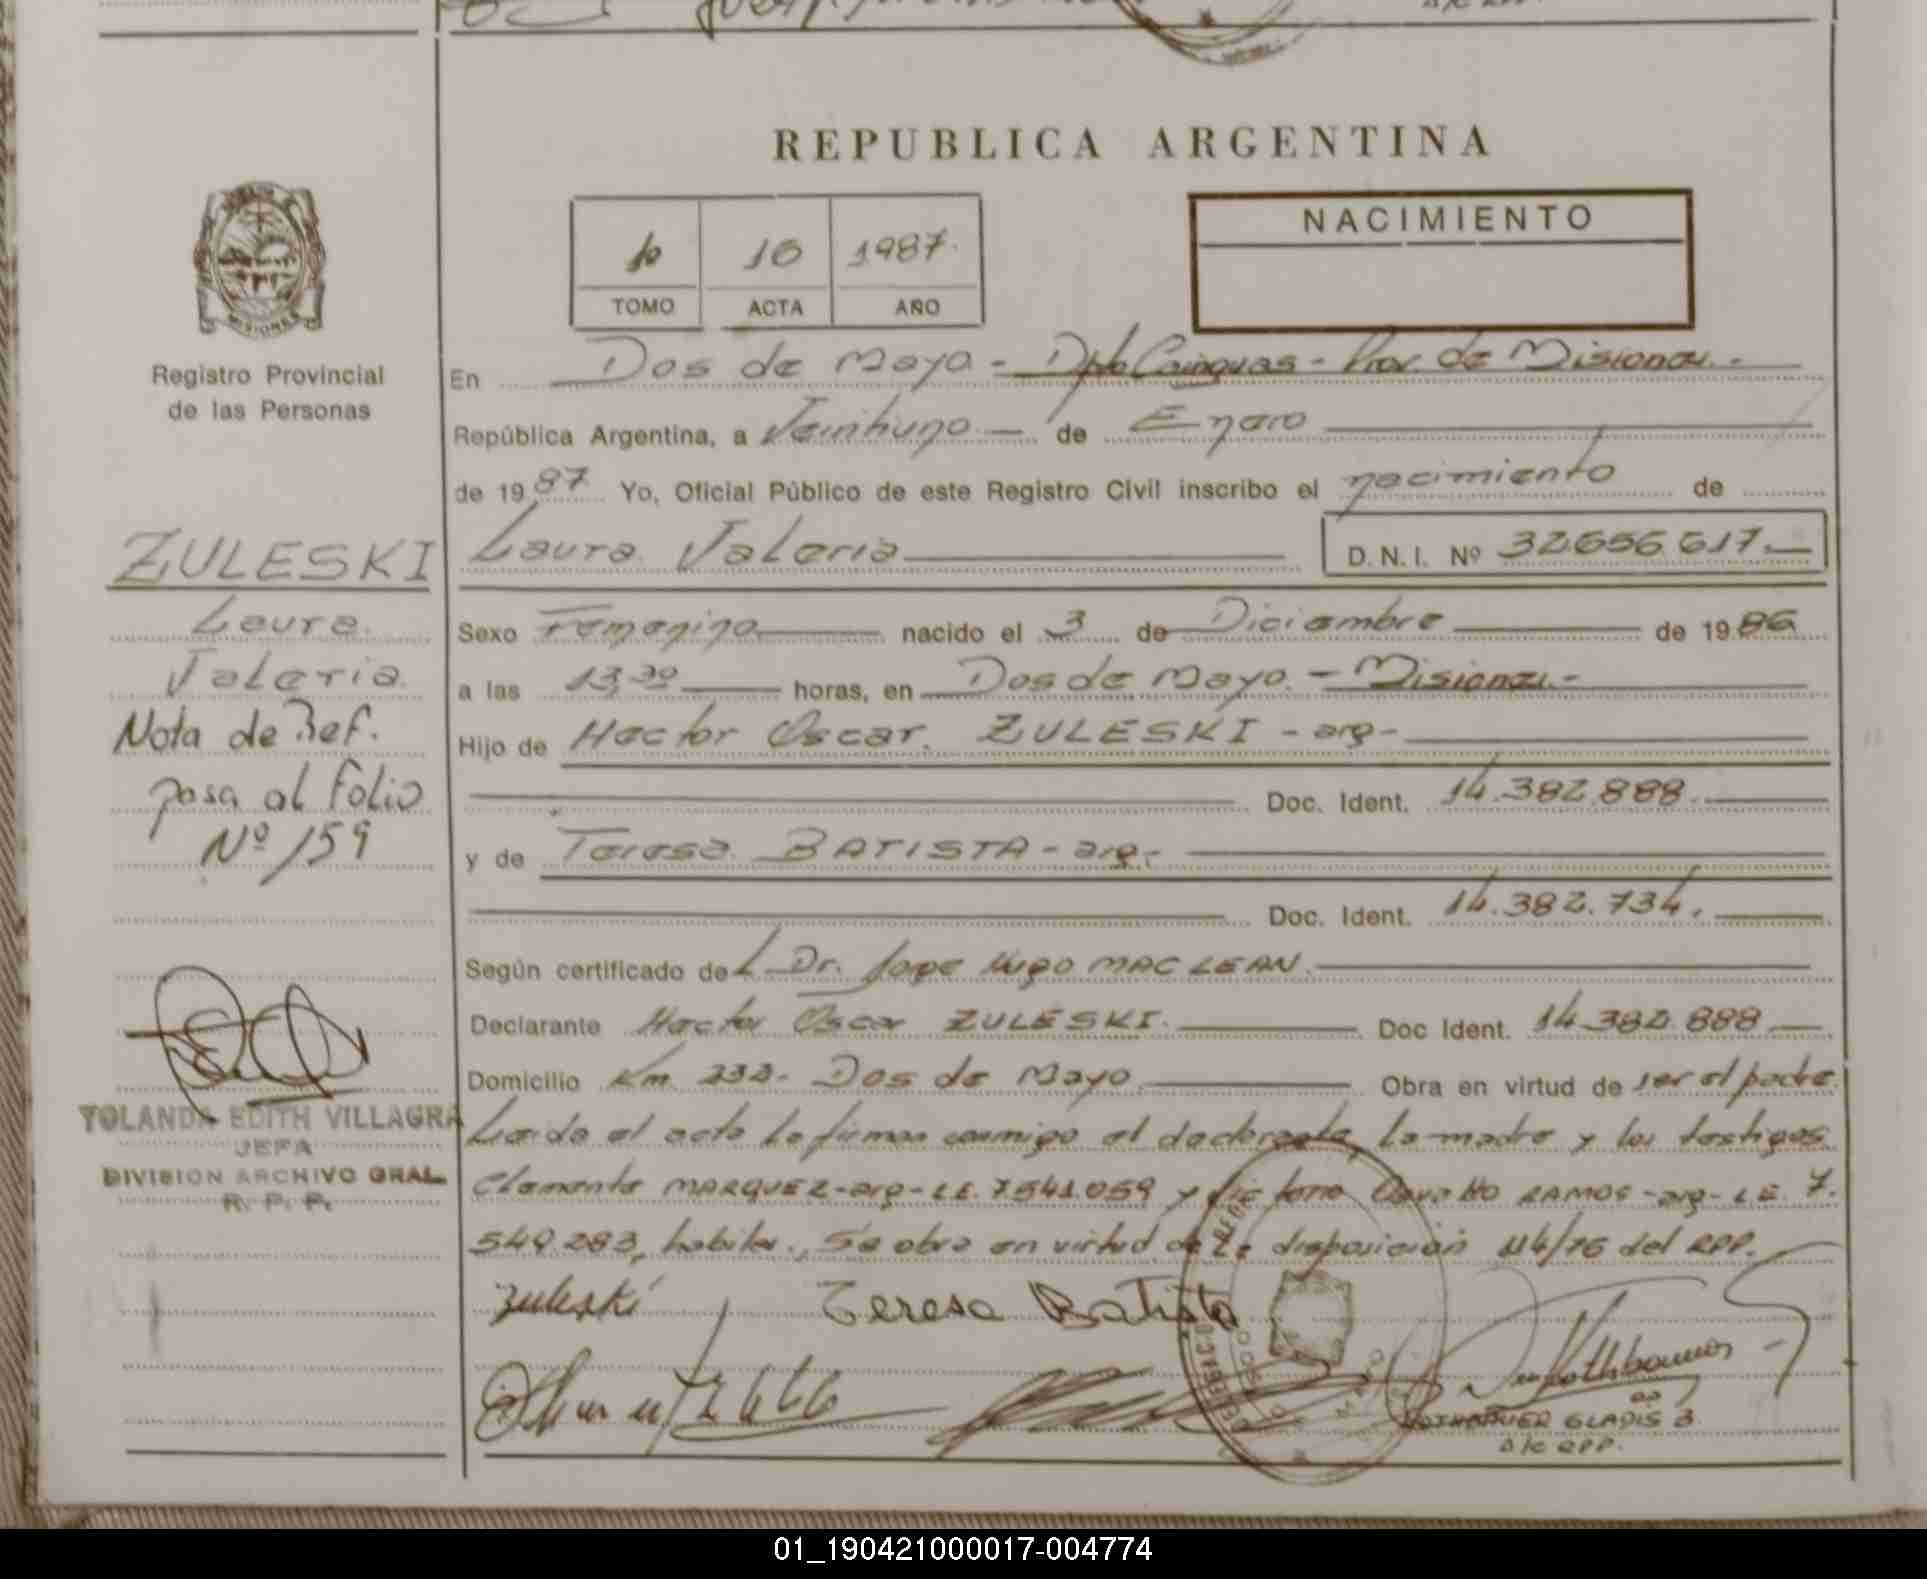 REPUBLICA ARGENTINA
MISIONES
Registro Provincial
de las Personas
10 16 1987.
TOMO ACTA AÑO
NACIMIENTO
En Dos de Mayo - Dpto Cainguas - Prov. de Misiones.-
República Argentina, a Veintiuno — de Enero
de 1987 Yo, Oficial Público de este Registro Civil inscribo el nacimiento de
Laura Valeria D.N.I. Nº 32656.617.—
Sexo Femenino nacido el 3 de Diciembre de 1986
a las 13,30 horas, en Dos de Mayo. - Misiones.-
Hijo de Hector Oscar. ZULESKI - arg-
Doc. Ident. 14.382.888.
y de Teresa BATISTA - arg.-
Doc. Ident. 14.382.734.
Según certificado de L Dr. Jorge Hugo MAC LEAN.
Declarante Hector Oscar ZULESKI. Doc Ident. 14.382.888
Domicilio Km 232- Dos de Mayo. Obra en virtud de ser el padre.
Leida el acta la firman conmigo el declarante, la madre y los testigos
Clemente MARQUEZ-arg-L.E. 7541.059 y RAMOS -arg- L.E. 7.
549.283, habiles., Se obra en virtud de la disposición 114/76 del RPP.
Zuleski Teresa Batista
GLADIS B.
A/C RPP.
ZULESKI
Laura
Valeria
Nota de Ref.
pasa al Folio
Nº 159
YOLANDA EDITH VILLAGRA
JEFA
DIVISION ARCHIVO GRAL.
R. P. P.
01_190421000017-004774